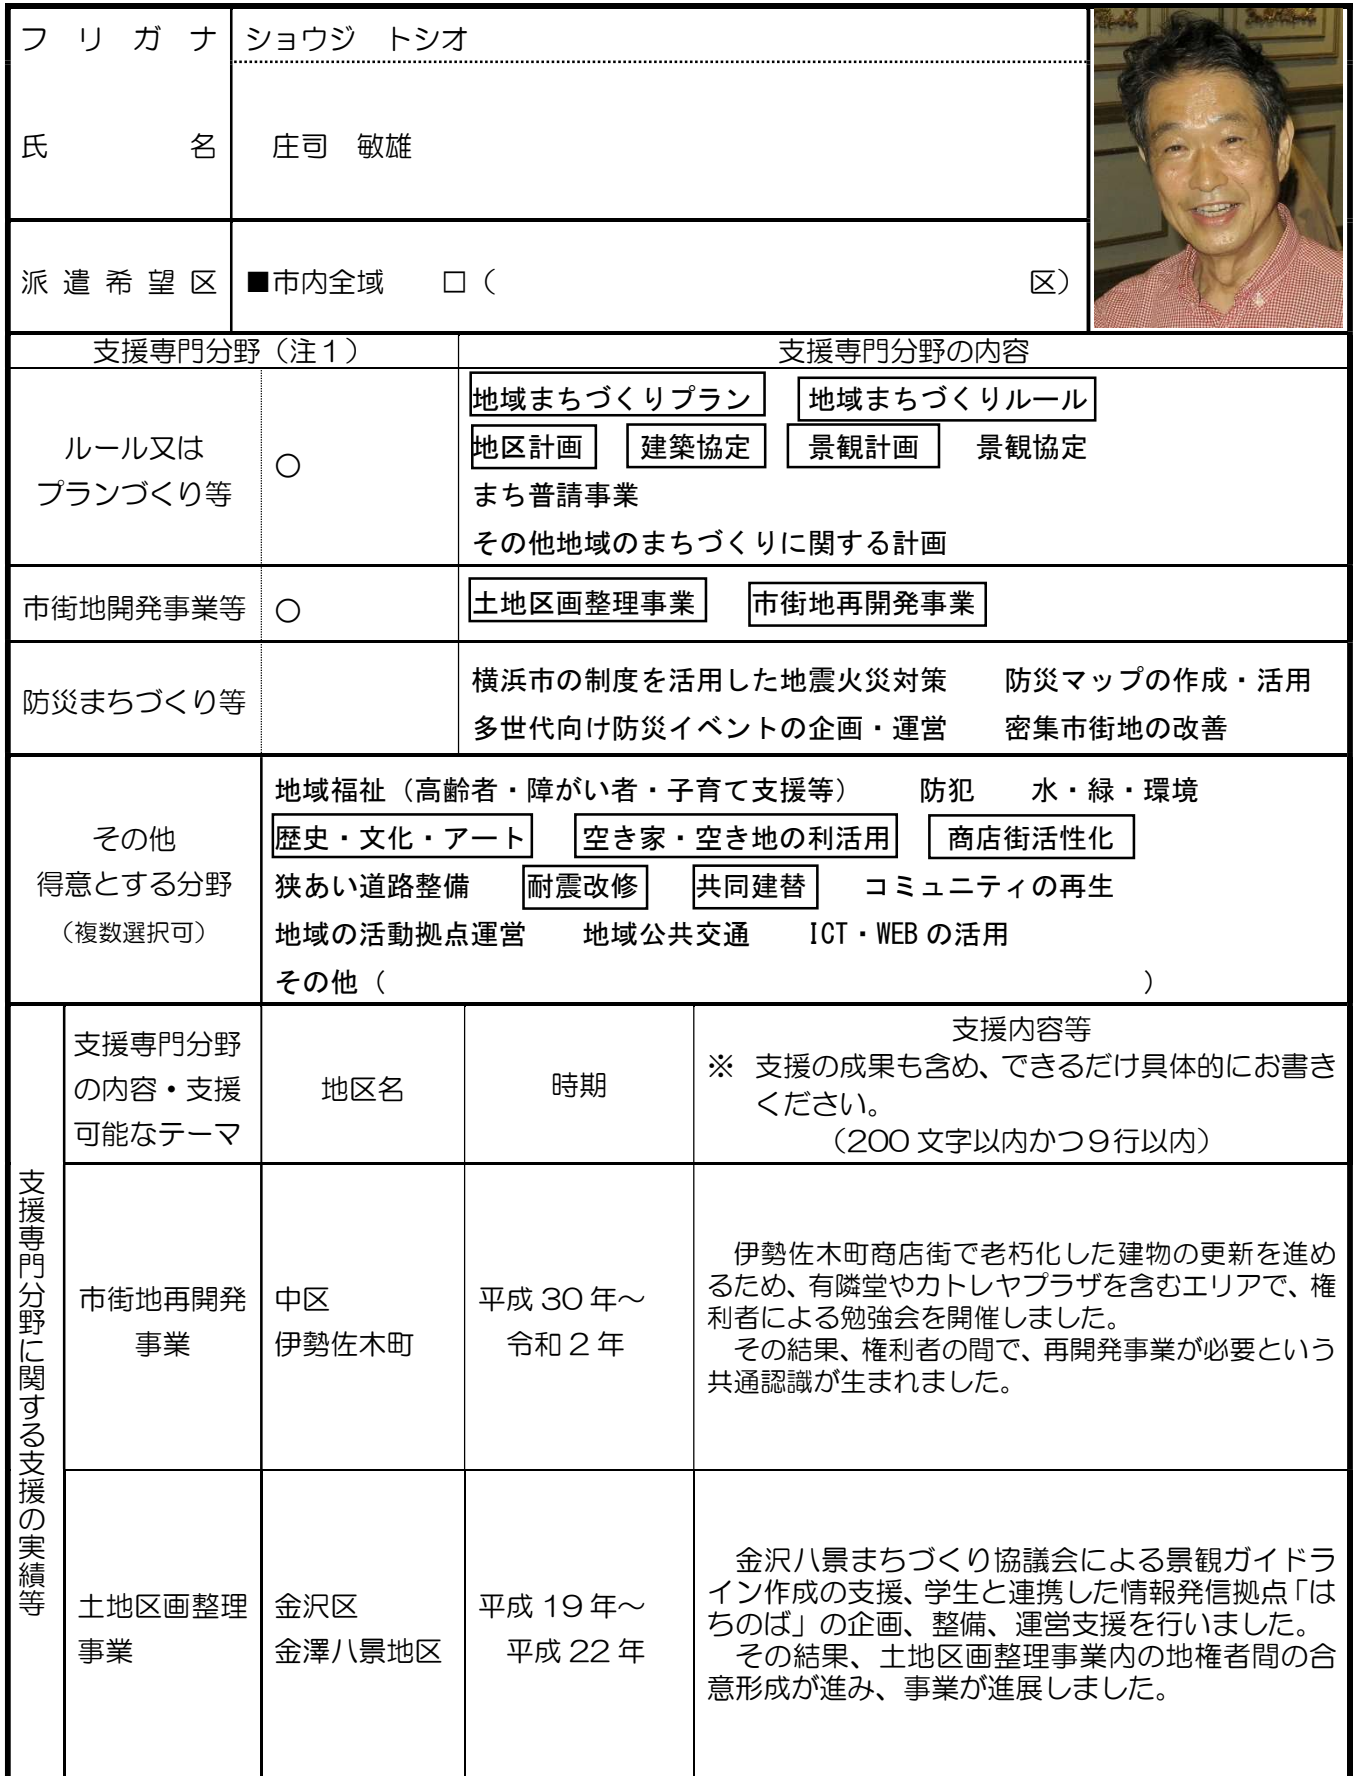 フリガナ ショウジ トシオ
氏名 庄司 敏雄
派遣希望区 ■市内全域 □( 区)
支援専門分野(注1) 支援専門分野の内容
ルール又は
プランづくり等
○
地域まちづくりプラン 地域まちづくりルール
地区計画 建築協定 景観計画 景観協定
まち普請事業
その他地域のまちづくりに関する計画
市街地開発事業等 ○ 土地区画整理事業 市街地再開発事業
防災まちづくり等
横浜市の制度を活用した地震火災対策 防災マップの作成・活用
多世代向け防災イベントの企画・運営 密集市街地の改善
その他
得意とする分野
(複数選択可)
地域福祉(高齢者・障がい者・子育て支援等) 防犯 水・緑・環境
歴史・文化・アート 空き家・空き地の利活用 商店街活性化
狭あい道路整備 耐震改修 共同建替 コミュニティの再生
地域の活動拠点運営 地域公共交通 ICT・WEBの活用
その他( )
支援専門分野に関する支援の実績等
支援専門分野
の内容・支援
可能なテーマ
地区名
時期
支援内容等
※ 支援の成果も含め、できるだけ具体的にお書き
ください。
(200文字以内かつ9行以内)
市街地再開発
事業
中区
伊勢佐木町
平成30年~
令和2年
伊勢佐木町商店街で老朽化した建物の更新を進め
るため、有隣堂やカトレヤプラザを含むエリアで、権
利者による勉強会を開催しました。
その結果、権利者の間で、再開発事業が必要という
共通認識が生まれました。
土地区画整理
事業
金沢区
金澤八景地区
平成19年~
平成22年
金沢八景まちづくり協議会による景観ガイドラ
イン作成の支援、学生と連携した情報発信拠点「は
ちのば」の企画、整備、運営支援を行いました。
その結果、土地区画整理事業内の地権者間の合
意形成が進み、事業が進展しました。